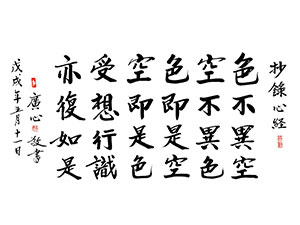 抄錄心經
色不異空
空不異色
色即是空
空即是色
受想行識
亦復如是
廣心敬書
戊戌年五月十一日